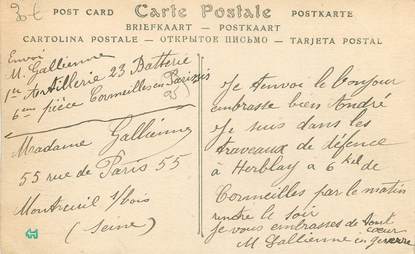 30€
POST CARD Carte Postale POSTKARTE
BRIEFKAART — POSTKAART
CARTOLINA POSTALE — ОТКРЫТОЕ ПИСЬМО — TARJETA POSTAL
Envoi
M. Gallienne
1re Artillerie 23 Batterie
6em pièce Cormeilles en Parisis
Madame Gallienne
55 rue de Paris 55
Montreuil s/bois
(Seine)
Je t'envoi le bonjour
embrasse bien André
Je suis dans les
travaux de défence
à Herblay a 6 kil de
Cormeilles par le matin
rentre le soir
je vous embrasses de tout
cœur
M Gallienne en guerre